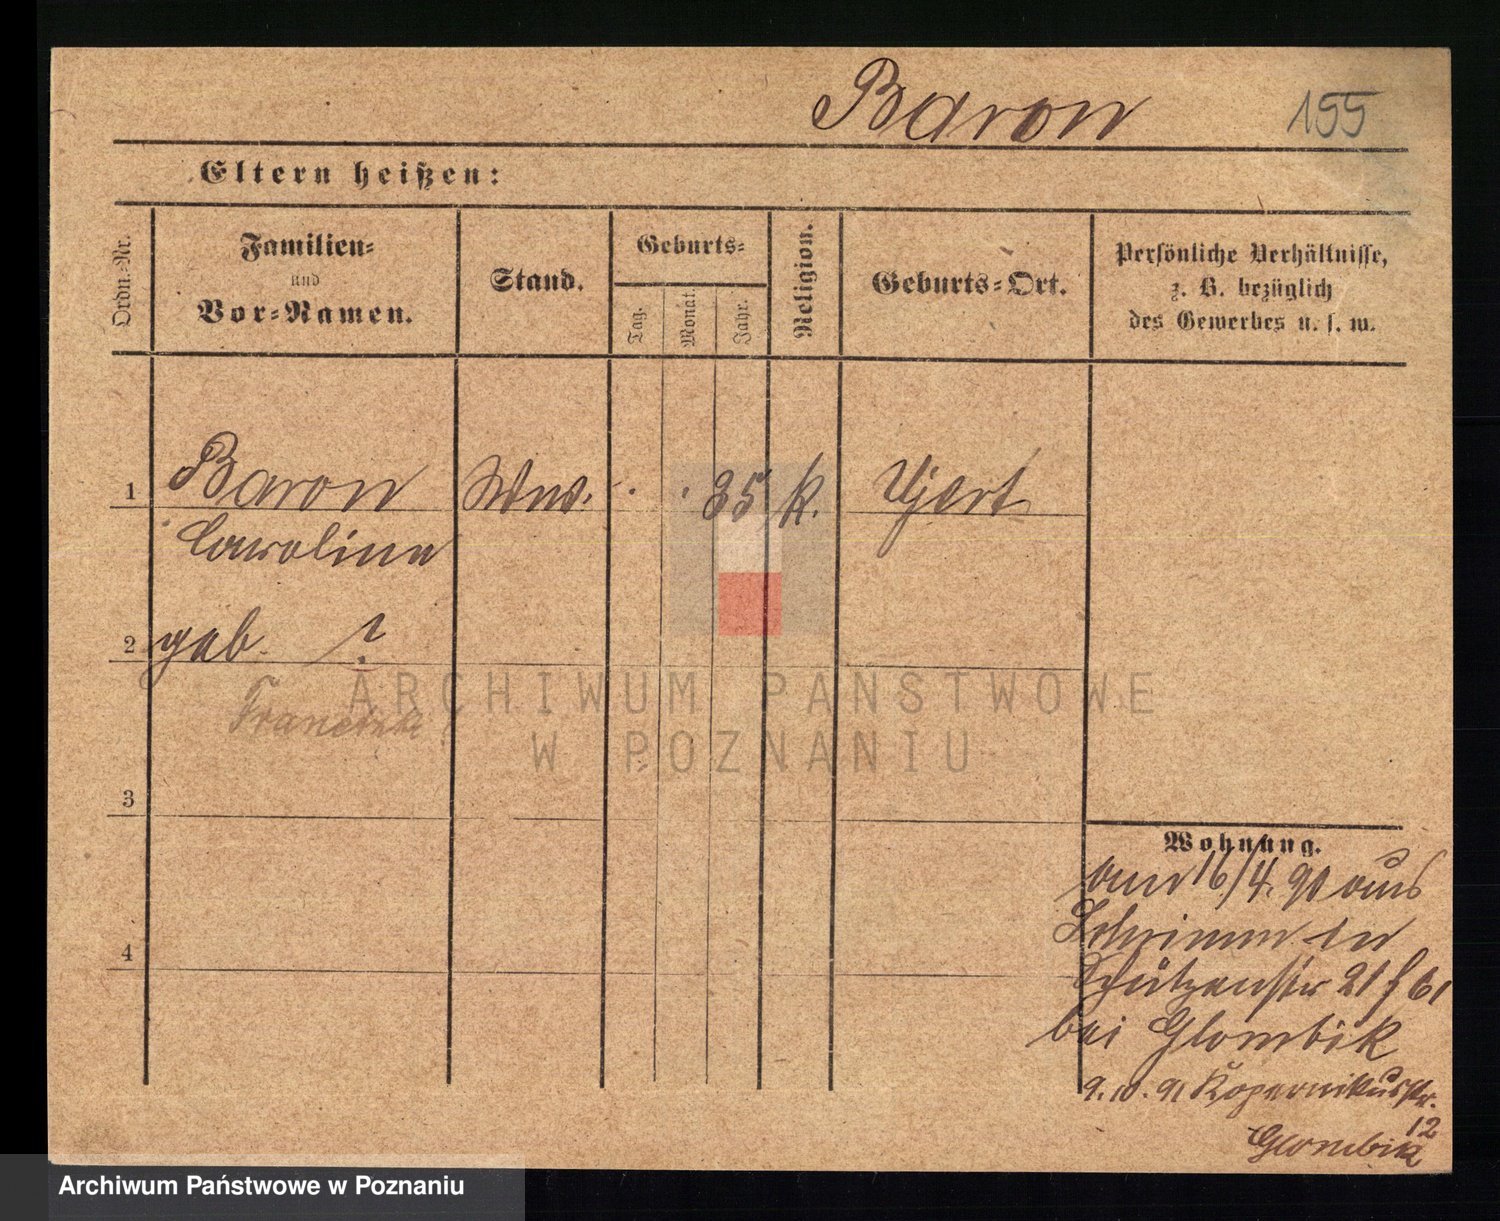 Baron 155
Eltern heißen:
Ordn.-Nr.
Familien-
und
Vor-Namen.
Stand.
Geburts-
Tag.
Monat.
Jahr.
Religion.
Geburts-Ort.
Persönliche Verhältnisse,
z. B. bezüglich
des Gewerbes u. s. w.
1 Baron Wwe. . . 35 k.
Caroline
2 geb. ?
3
4
Wohnung.
am 16/4. 90 aus
Schrimm in
Schützenstr 21 f 61
bei Glombik
9. 10. 91 Kopernikusstr.
12
Glombik
ARCHIWUM PAŃSTWOWE
W POZNANIU
Archiwum Państwowe w Poznaniu